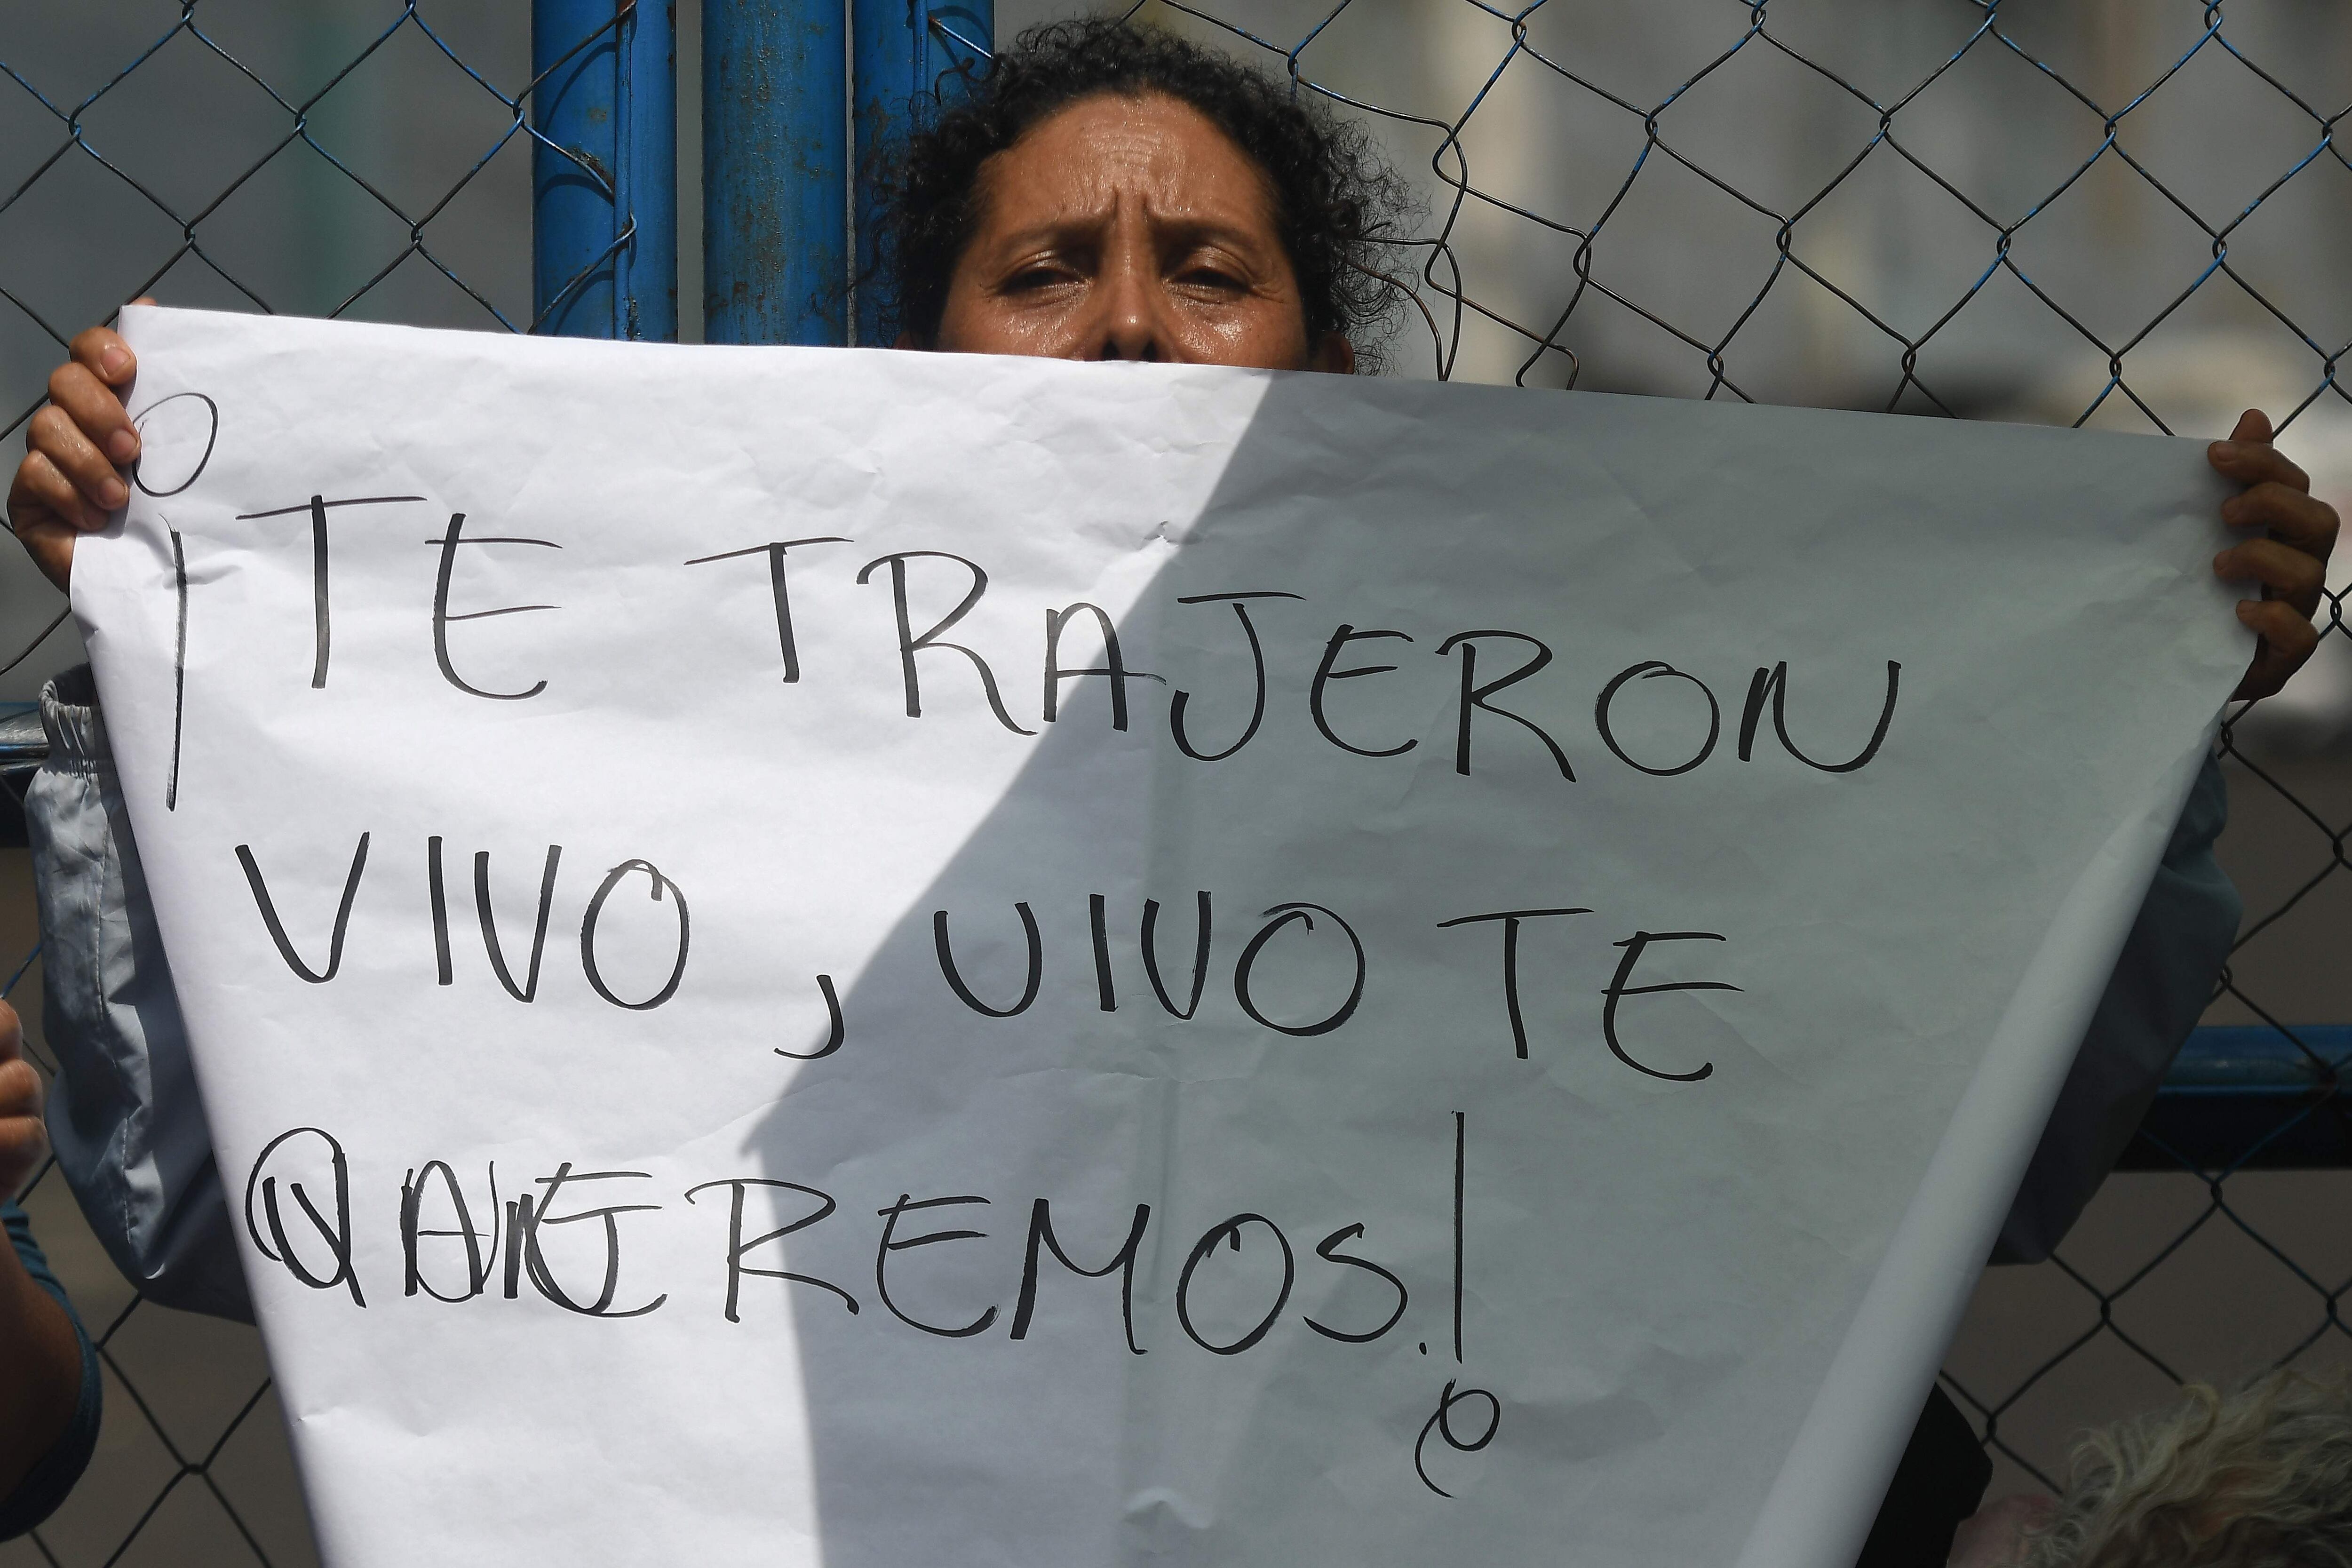 ¡TE TRAJERON
VIVO, VIVO TE
QUEREMOS.!